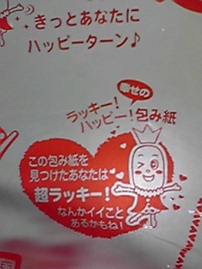 きっとあなたに
ハッピーターン♪
幸せの
ラッキー!
ハッピー!包み紙
この包み紙を
見つけたあなたは
超ラッキー!
なんかイイこと
あるかもね!